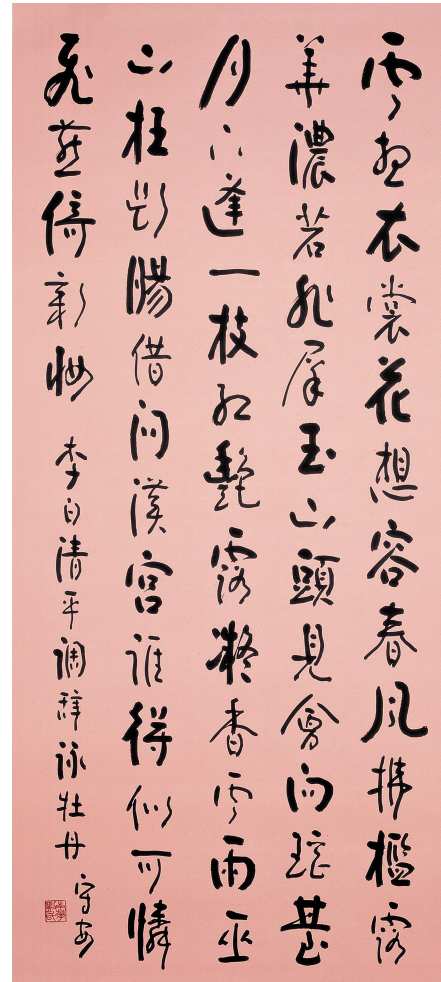 雲想衣裳花想容春風拂檻露
華濃若非羣玉山頭見會向瑤臺
月下逢一枝紅艷露凝香雲雨巫
山枉斷腸借問漢宮誰得似可憐
飛燕倚新妝 李白清平調辭詠牡丹 守安